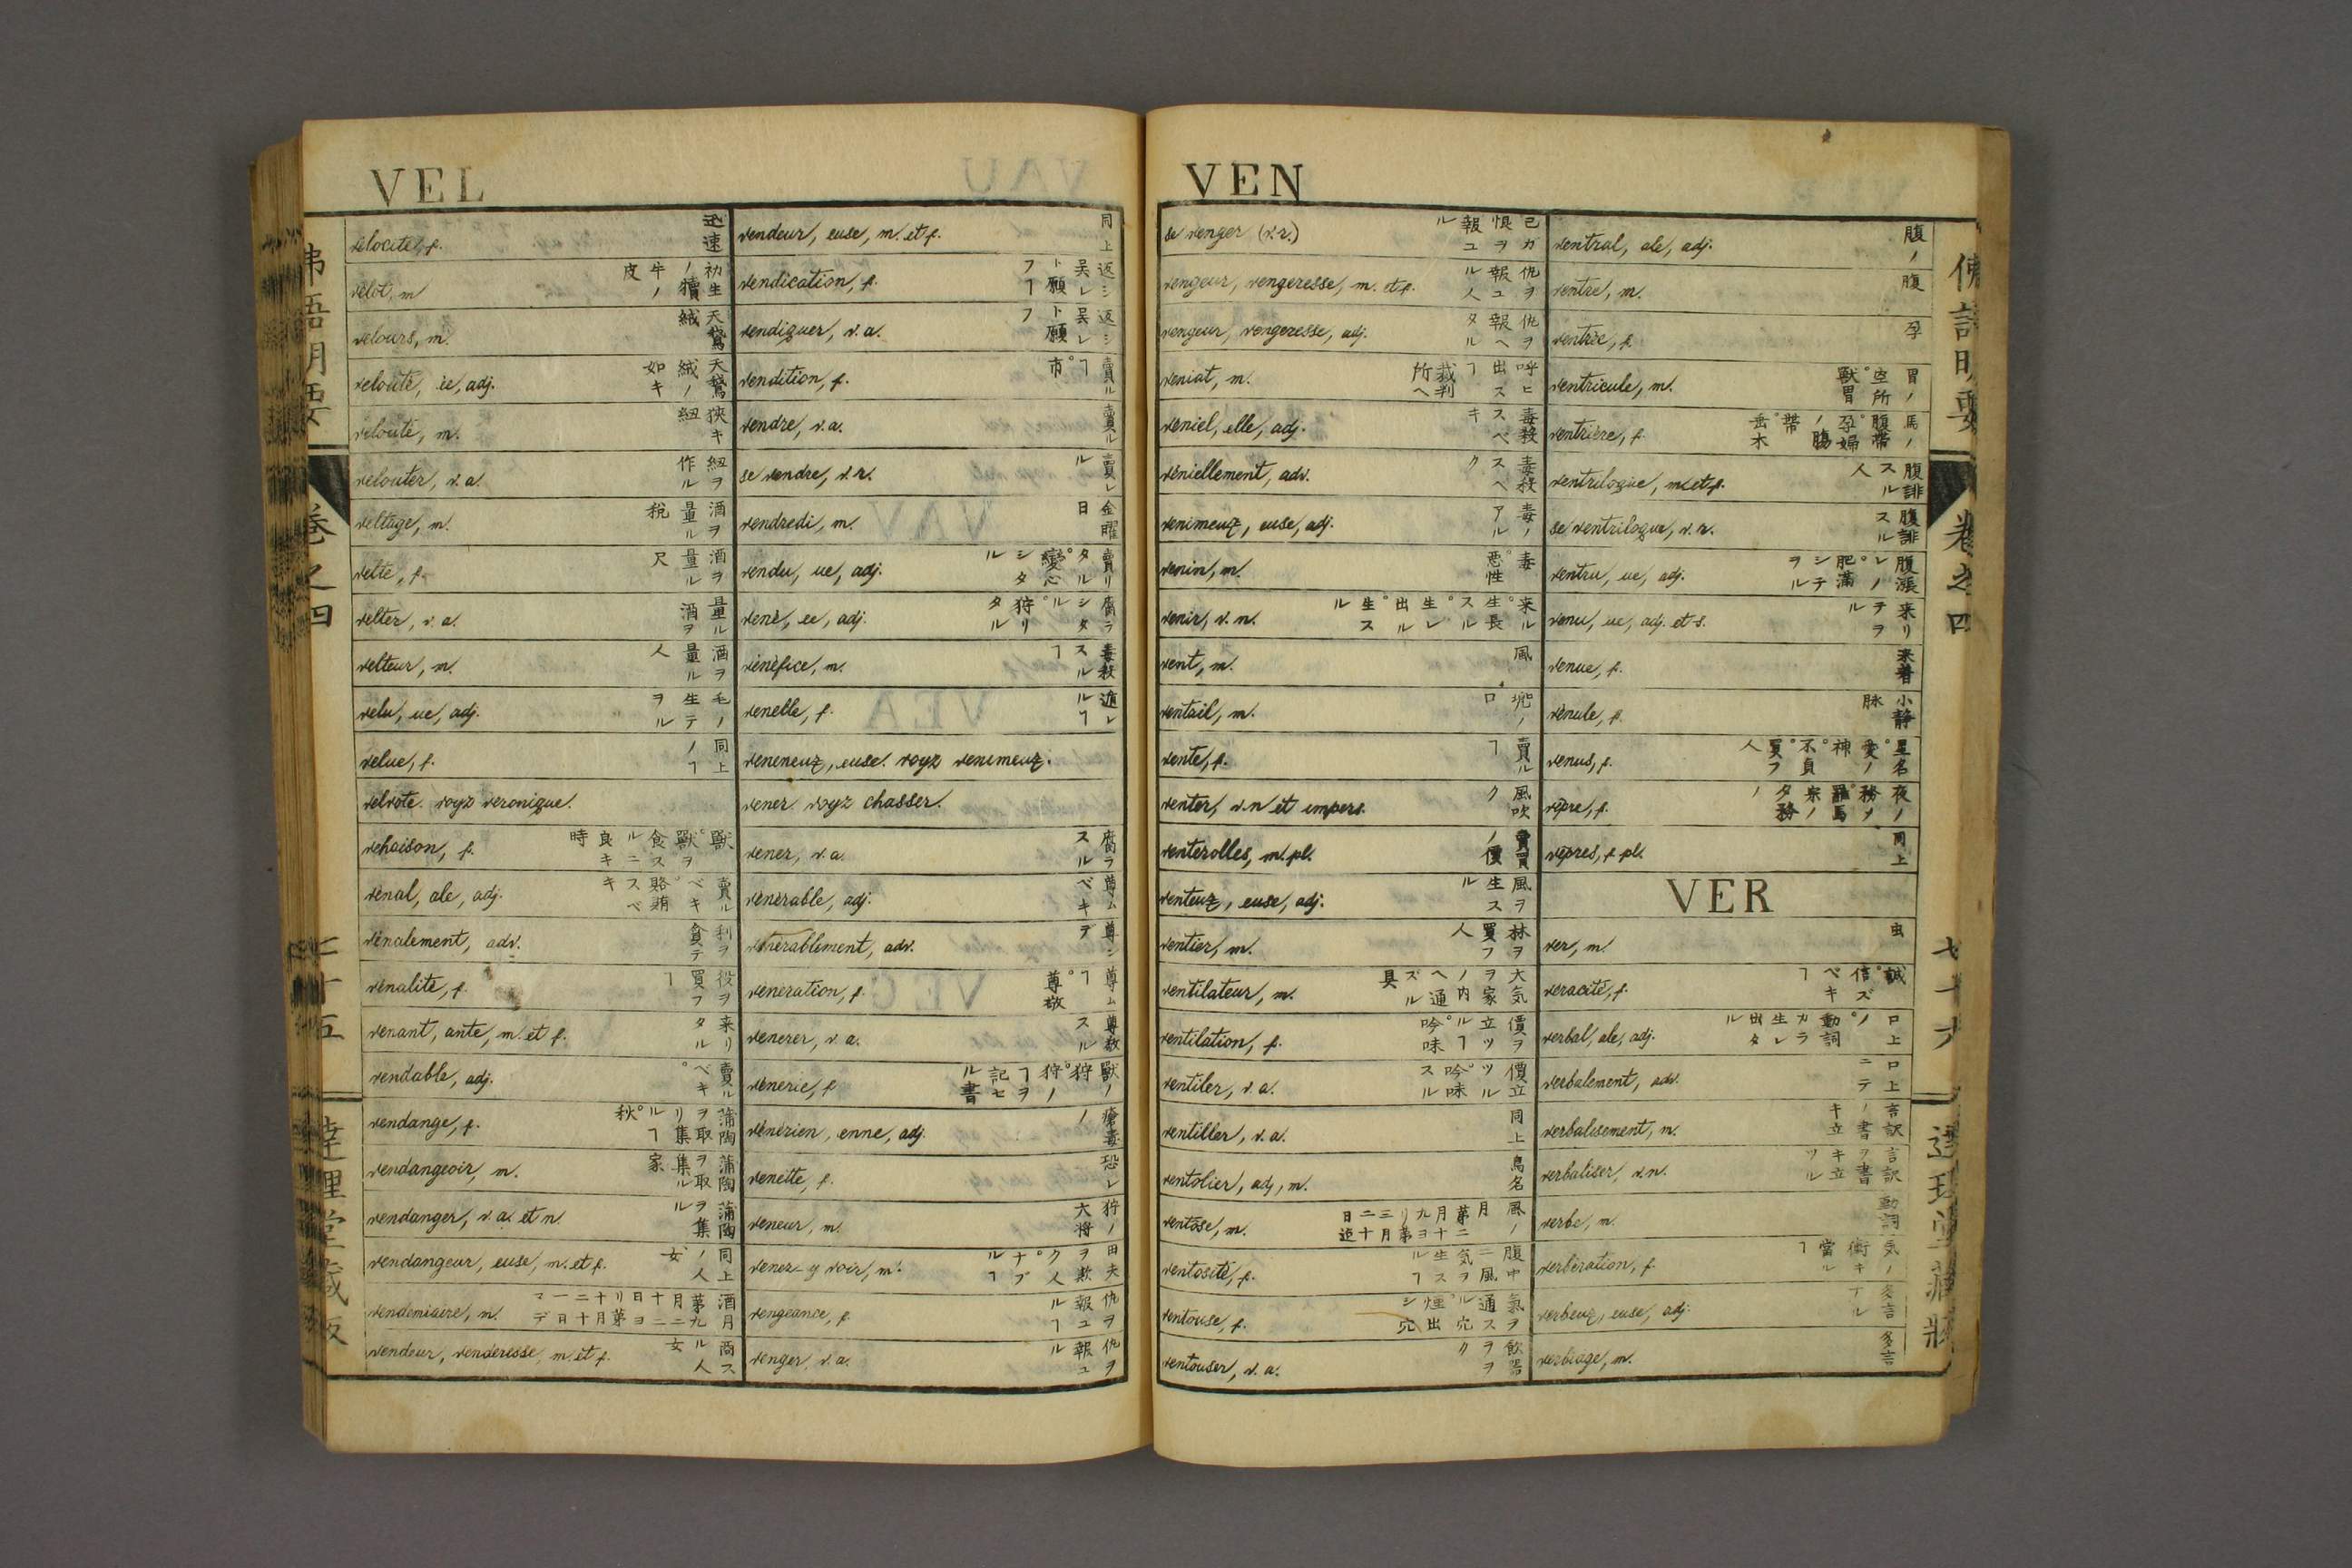 VEL
vélocité, f. 迅速
vélot, m. 初生ノ犢牛ノ皮
velours, m. 天鵞絨
velouté, ée, adj. 天鵞絨ノ如キ
velouté, m. 狹キ紐
velouter, v. a. 紐ヲ作ル
veltage, m. 酒ヲ量ル税
velte, f. 酒ヲ量ル尺
velter, v. a. 量ル酒ヲ
velteur, m. 酒ヲ量ル人
velu, ue, adj. 毛ノ生テヲル
velue, f. 同上ノヿ
velvote. voyz veronique.
venaison, f. 獸。獸ヲ食スルニ良キ時
vénal, ale, adj. 賣ルベキ。賂賄スベキ
vénalement, adv. 利ヲ貪テ
vénalité, f. 役ヲ買フヿ
venant, ante, m. et f. 来リタル
vendable, adj. 賣ルベキ。
vendange, f. 蒲陶ヲ取リ集ルヿ。秋
vendangeoir, m. 蒲陶ヲ取集ル家
vendanger, v. a. et n. 蒲陶ヲ集ル
vendangeur, euse, m. et f. 同上ノ人女
vendemiaire, m.
vendeur, venderesse, m. et f. 商スル人女
vendeur, euse, m. et f. 同上
vendication, f. 返シ呉レト願フヿ
vendiquer, v. a. 返シ呉レト願フ
vendition, f. 賣ルヿ。市
vendre, v. a. 賣ル
se vendre, v. r. 賣レル
vendredi, m. 金曜日
vendu, ue, adj. 賣リタル。變心シタル
vené, ée, adj. 腐ラシタル。狩リタル
vénéfice, m. 毒殺スルヿ
venelle, f. 遁レルヿ
veneneux, euse. voyz venimeux.
vener. voyz chasser.
vener, v. a. 腐ラスル
vénérable, adj. 尊ムベキ
vénérablement, adv. 尊シデ
veneration, f. 尊ムヿ。尊敬
venerer, v. a. 尊敬スル
vénerie, f. 獸ノ狩。狩ノヿヲ記セル書
vénérien, enne, adj. 瘡毒ノ
venette, f. 恐レ
veneur, m. 狩ノ大将
venez-y voir, m. 田夫ヲ欺ク。人ナブルヿ
vengeance, f. 仇ヲ報ユルヿ
venger, v. a. 仇ヲ報ユル
VEN
se venger (v. r.) 己ガ惧ヲ報ユル
vengeur, vengeresse, m. et f. 仇ヲ報ユル人
vengeur, vengeresse, adj. 仇ヲ報ヘタル
veniat, m. 呼ヒ出スヿ裁判所ヘ
veniel, elle, adj. 毒殺スベキ
véniellement, adv. 毒殺スヘク
venimeux, euse, adj. 毒ノアル
venin, m. 毒。悪性
venir, v. n. 来ル。生長スル。生レ出ル。生スル
vent, m. 風
ventail, m. 兜ノ口
vente, f. 賣ルヿ
venter, v. n et impers. 風吹ク
venterolles, m. pl. 賣買ノ價
venteux, euse, adj. 風ヲ生スル
ventier, m. 林ヲ買フ人
ventilateur, m. 大気ヲ家ノ内ヘ通ズル具
ventilation, f. 價ヲ立ツルヿ。吟味
ventiler, v. a. 價立ツル。吟味スル
ventiller, v. a. 同上
ventolier, adj, m. 鳥名
ventôse, m.
ventosité, f. 腹中ニ風気ヲ生スルヿ
ventouse, f. 氣ヲ通スル穴。煙出シ穴
ventouser, v. a.
ventral, ale, adj. 腹ノ
ventre, m. 腹
ventrée, f. 孕
ventricule, m. 胃ノ空所。獸胃
ventrière, f. 馬ノ腹帶。孕婦ノ腸帶。岳木
ventriloque, m. et f. 腹誹スル人
se ventriloque, v. r. 腹誹スル
ventru, ue, adj. 腹漲レノ。肥滿シテヲル
venu, ue, adj. et s. 来リテヲル
venue, f. 来着
vénule, f. 小静脉
venus, f. 星名。愛ノ神。不貞。買フ人
vêpre, f.
vêpres, f. pl. 同上
VER
ver, m. 虫
veracité, f. 誠。信ズベキヿ
verbal, ale, adj. 口上ノ。動詞カラ生レ出タル
verbalement, adv. 口上ニテ
verbalisement, m. 言訳ノ書キ立
verbaliser, v. n. 言訳ヲ書キ立ツル
verbe, m. 動詞
verbération, f. 気ノ衝キ當ルヿ
verbeux, euse, adj. 多言ナル
verbiage, m. 多言
佛語明要 卷之四 七十六 達理堂藏版